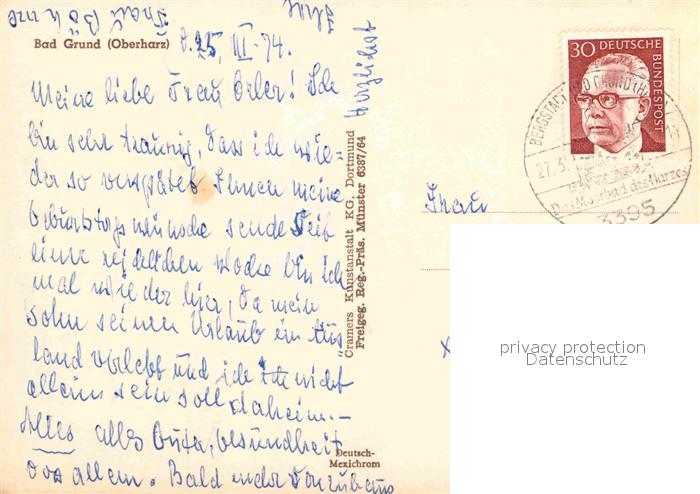 Bad Grund (Oberharz)
d. 25. III. 74.
Meine liebe Frau Orler! Ich
bin sehr traurig, dass ich wie-
der so verspätet Ihnen meine
Geburtstagswünsche sende. Seit
einer reichlichen Woche bin ich
mal wieder hier, da mein
Sohn seinen Urlaub im Aus-
land verlebt und ich nicht
allein sein soll daheim.-
Alles alles Gute, Gesundheit
vor allem. Bald
Herzlichst
Ihre
Frau
Cramers Kunstanstalt KG, Dortmund
Freigeg. Reg.-Präs. Münster 6387/64
Deutsch-
Mexichrom
30 DEUTSCHE
BUNDESPOST
BERGSTADT BAD GRUND (HARZ)
27.3.
Das Moorbad des Harzes
3395
Frau
privacy protection
Datenschutz